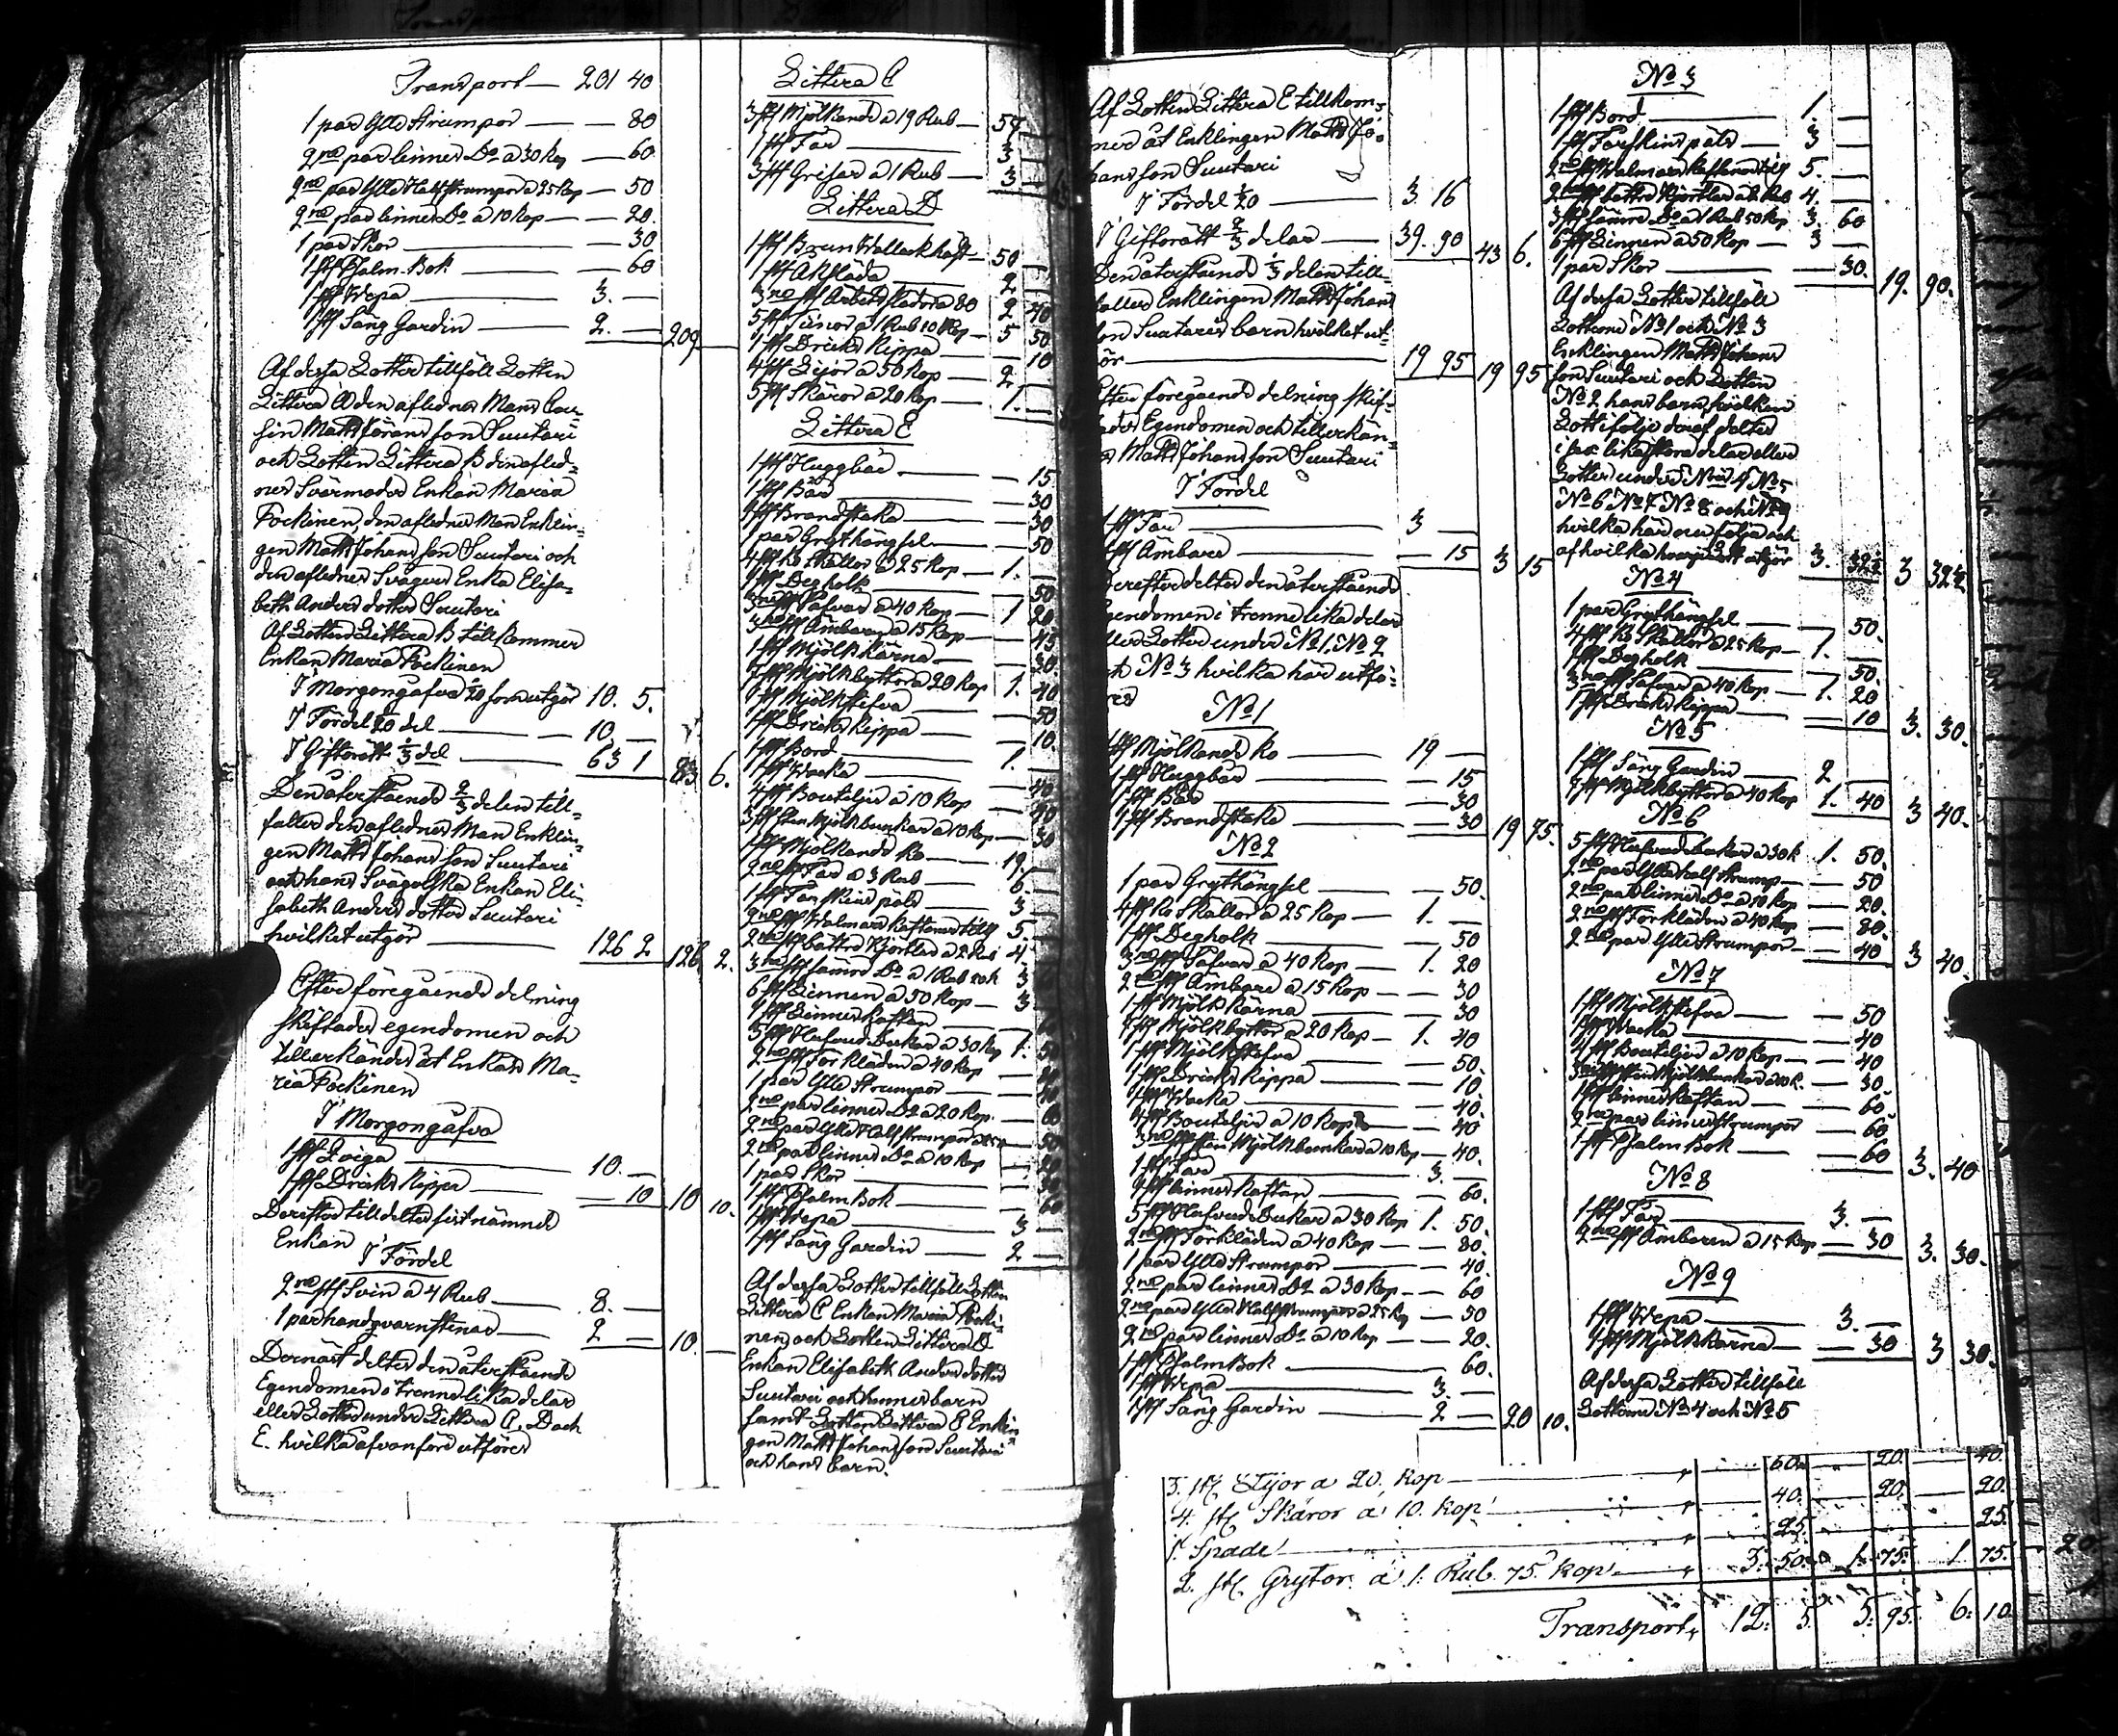 Transport — 201 40
1 par Ylle Strumpor — 80
2ne par linnes Do a 30 Kop — 60
2ne par Ylle Half strumpor a 25 Kop — 50
2ne par linnes Do a 10 Kop — 20.
1 par Skor — 30
1 st Psalm Bok — 60
1 st Wepa — 3. —
1 st Säng Gardin — 2. — 209 —
Af dessa Lotter tillföll Lotten
Littera A den aflednes Mans Cou=
sin Matts Jörans son Suutari
och Lotten Littera B den afled=
nes Svärmoder Enkan Maria
Pockinen, den aflednes Man Enklin=
gen Matts Johans son Suutari och
den aflednes Svägers Enka Elisa=
beth Anders dotter Suutari
Af Lotten Littera B tillkommer
Enkan Maria Pockinen
I Morgongåfva 1/20 som utgör 10. 5.
I Fördel 1/20 del — 10. —
I Giftorätt 1/3 del — 63 1 83 6.
Den återstående 2/3 delen till=
faller den aflednes Man Enklin=
gen Matts Johans son Suutari
och hans Svägerska Enkan Eli=
sabeth Anders dotter Suutari
hvilket utgör — 126 2 126 2.
Efter föregående delning
skiftades egendomen och
tillerkändes åt Enkan Ma=
ria Pockinen
I Morgongåfva
1 st Qviga — 10. —
1 st Dricks Kippa — 10 10 10.
Derefter tilldeltes förstnämnde
Enkan
I Fördel
2ne st Svin a 4 Rub — 8. —
1 par handqvarnstenar — 2 — 10. —
Dernäst deltes den återstående
Egendomen i trenne lika delar
eller Lotter under Littera C, D och
E. hvilka afvanföre utföres
Littera C
3 st Mjölkande a 19 Rub — 57 —
1 st Får — 3 —
3 st Grisar a 1 Rub — 3 —
Littera D
1 st Brun Wallack häst — 50 —
1 st Åksläda — 2 —
3ne st Arbets slädor a 80 2 40
5 st Tunnor a 1 Rub 10 Kop — 5 50
1 st Dricks Kippa — 10
4 st Lijor a 50 Kop — 2 —
5 st Skäror a 20 Kop — 1. —
Littera E
1 st Huggbår — 15
1 st Bår — 30
1 st Brandstake — 30
1 par Grythängsel — 50
4 st Ko Skällor a 25 Kop — 1. —
1 st Degholk — 50
3ne st Såfvar a 40 Kop — 1 20
3ne st Ämbare a 15 Kop — 45
1 st Mjölk kärna — 30.
7 st Mjölkbyttor a 20 Kop 1. 40
1 st Mjölkstefva — 50
1 st Dricks Kippa — 10.
1 st Bord — 1. —
1 st Wacka — 40
4 st Bouteljer a 10 Kop — 40
3 st Sten Mjölkbunkar a 10 Kop — 30
1 st Mjölkande ko — 19. —
2ne st Får a 3 Rub — 6. —
1 st Fårskins päls — 3 —
2ne st Walmars Kaftaner till 5 —
2ne st bättre Kjortlar a 2 Rub 4. —
3ne st sämre Do a 1 Rub 20 K 3
6 st Linnen a 50 Kop — 3
1 st Linnes Kaftan — 60
5 st Hufvud Dukar a 30 Kop 1. 50
2ne st Förkläden a 40 Kop — 80
1 par Ylle Strumpor — 40
2ne par linnes Do a 30 Kop. — 60
2ne par Ylle Half strumpor — 50
2ne par linnes Do a 10 Kop — 20
1 par Skor — 30
1 st Psalm Bok — 60
1 st Wepa — 3 —
1 st Säng Gardin — 2 —
Af dessa Lotter tillföll Lotten
Littera C Enkan Maria Pocki=
nen och Lotten Littera D
Enkan Elisabeth Anders dotter
Suutari och hennes barn
samt Lotten Littera E Enklin=
gen Matts Johans son Suutari
och hans barn.
Af Lotten Littera E tillkom=
mer åt Enklingen Matts Jo=
hans son Suutari
I Fördel 1/20 — 3. 16
I Giftorätt 2/3 delar — 39. 90 43 6.
Den återstående 1/3 delen till=
faller Enklingen Matts Johans
son Suutaris barn hvilket ut=
gör — 19 95 19 95
Efter föregående delning skif=
tades Egendomen och tillerkän=
s Matts Johans son Suutari
I Fördel
1 st Får — 3 —
1 st Ämbare — 15 3 15
Derefter deltes den återstående
Egendomen i trenne lika delar
eller Lotter under No 1, No 2
och No 3 hvilka här utfö=
res
No 1
1 st Mjölkande ko — 19 —
1 st Huggbår — 15
1 st Bår — 30
1 st Brandstake — 30 19 75.
No 2
1 par Grythängsel — 50.
4 st Ko Skällor a 25 Kop — 1. —
1 st Degholk — 50
3ne st Såfvar a 40 Kop — 1. 20
2ne st Ämbare a 15 Kop — 30
1 st Mjölk kärna — 30
7 st Mjölkbyttor a 20 Kop — 1. 40
1 st Mjölkstefva — 50.
1 st Dricks kippa — 10.
1 st Wacka — 40.
4 st Bouteljer a 10 Kop — 40
3ne st Sten Mjölkbunkar a 10 Kop — 40.
1 st Får — 3. —
1 st linnes Kaftan — 60.
5 st Hufvud Dukar a 30 Kop 1. 50.
2ne st Förkläden a 40 Kop — 80.
1 par Ylle Strumpor — 40.
2ne par linnes Do a 30 Kop — 60
2ne par Ylle Half strumpor a 25 Kop — 50
2ne par linnes Do a 10 Kop — 20.
1 st Psalm Bok — 60.
1 st Wepa — 3. —
1 st Säng Gardin — 2 — 20 10.
No 3
1 st Bord — 1. —
1 st Fårskins päls — 3 —
2ne st Walmars Kaftaner till 5. —
2ne st bättre Kjortlar a 2 Rub 4. —
3 st sämre Do a 1 Rub 50 Kop 3. 60
6 st Linnen a 50 Kop — 3 —
1 par Skor — 30. 19. 90.
Af dessa Lotter tillföll
Lotterne No 1 och No 3
Enklingen Matts Johans
son Suutari och Lotten
No 2 hans barn, hvilken
Lott i följe deraf deltes
i sex lika stora delar eller
Lotter under Nris 4 No 5
No 6 No 7 No 8 och No 9
hvilka här nu följa och
af hvilka hvarje Lott utgör 3. 32½ 3 32½
No 4
1 par Grythängsel — 50.
4 st Ko Skällor a 25 Kop — 1. —
1 st Degholk — 50.
3ne st Såfvar a 40 Kop — 1. 20
1 st Dricks Kippa — 10 3. 30.
No 5
1 st Säng Gardin — 2 —
7 st Mjölkbyttor a 40 Kop 1. 40 3 40.
No 6
5 st Hufvud dukar a 30 K 1. 50.
2ne par Ylle half strump — 50
2ne par linnes Do a 10 Kop — 20.
2ne st Förkläden a 40 Kop — 80.
2ne par Ylle Strumpor — 40 3 40.
No 7
1 st Mjölkstefva — 50
1 st Wacka — 40
4 st Bouteljer a 10 Kop — 40
3ne st Sten Mjölkbunkar a 10 K. — 30.
1 st linnes Kaftan — 60
2ne par linnes strumpor — 60
1 st Psalm Bok — 60 3. 40
No 8
1 st Får — 3. —
2ne st Ämbaren a 15 Kop — 30 3. 30.
No 9
1 st Wepa — 3. —
1 st Mjölk kärna — 30 3 30.
Af dessa Lotter tillföll
Lotterne No 4 och No 5
3. st. Lijor a 20. kop — 60. 20. 40.
4. st. Skäror a 10. kop — 40. 20. 20.
1. Spade — 25. 25.
2. st. Grytor a 1. Rub. 75. kop. — 3. 50. 1. 75. 1. 75.
Transport, 12. 5. 5. 95. 6. 10.